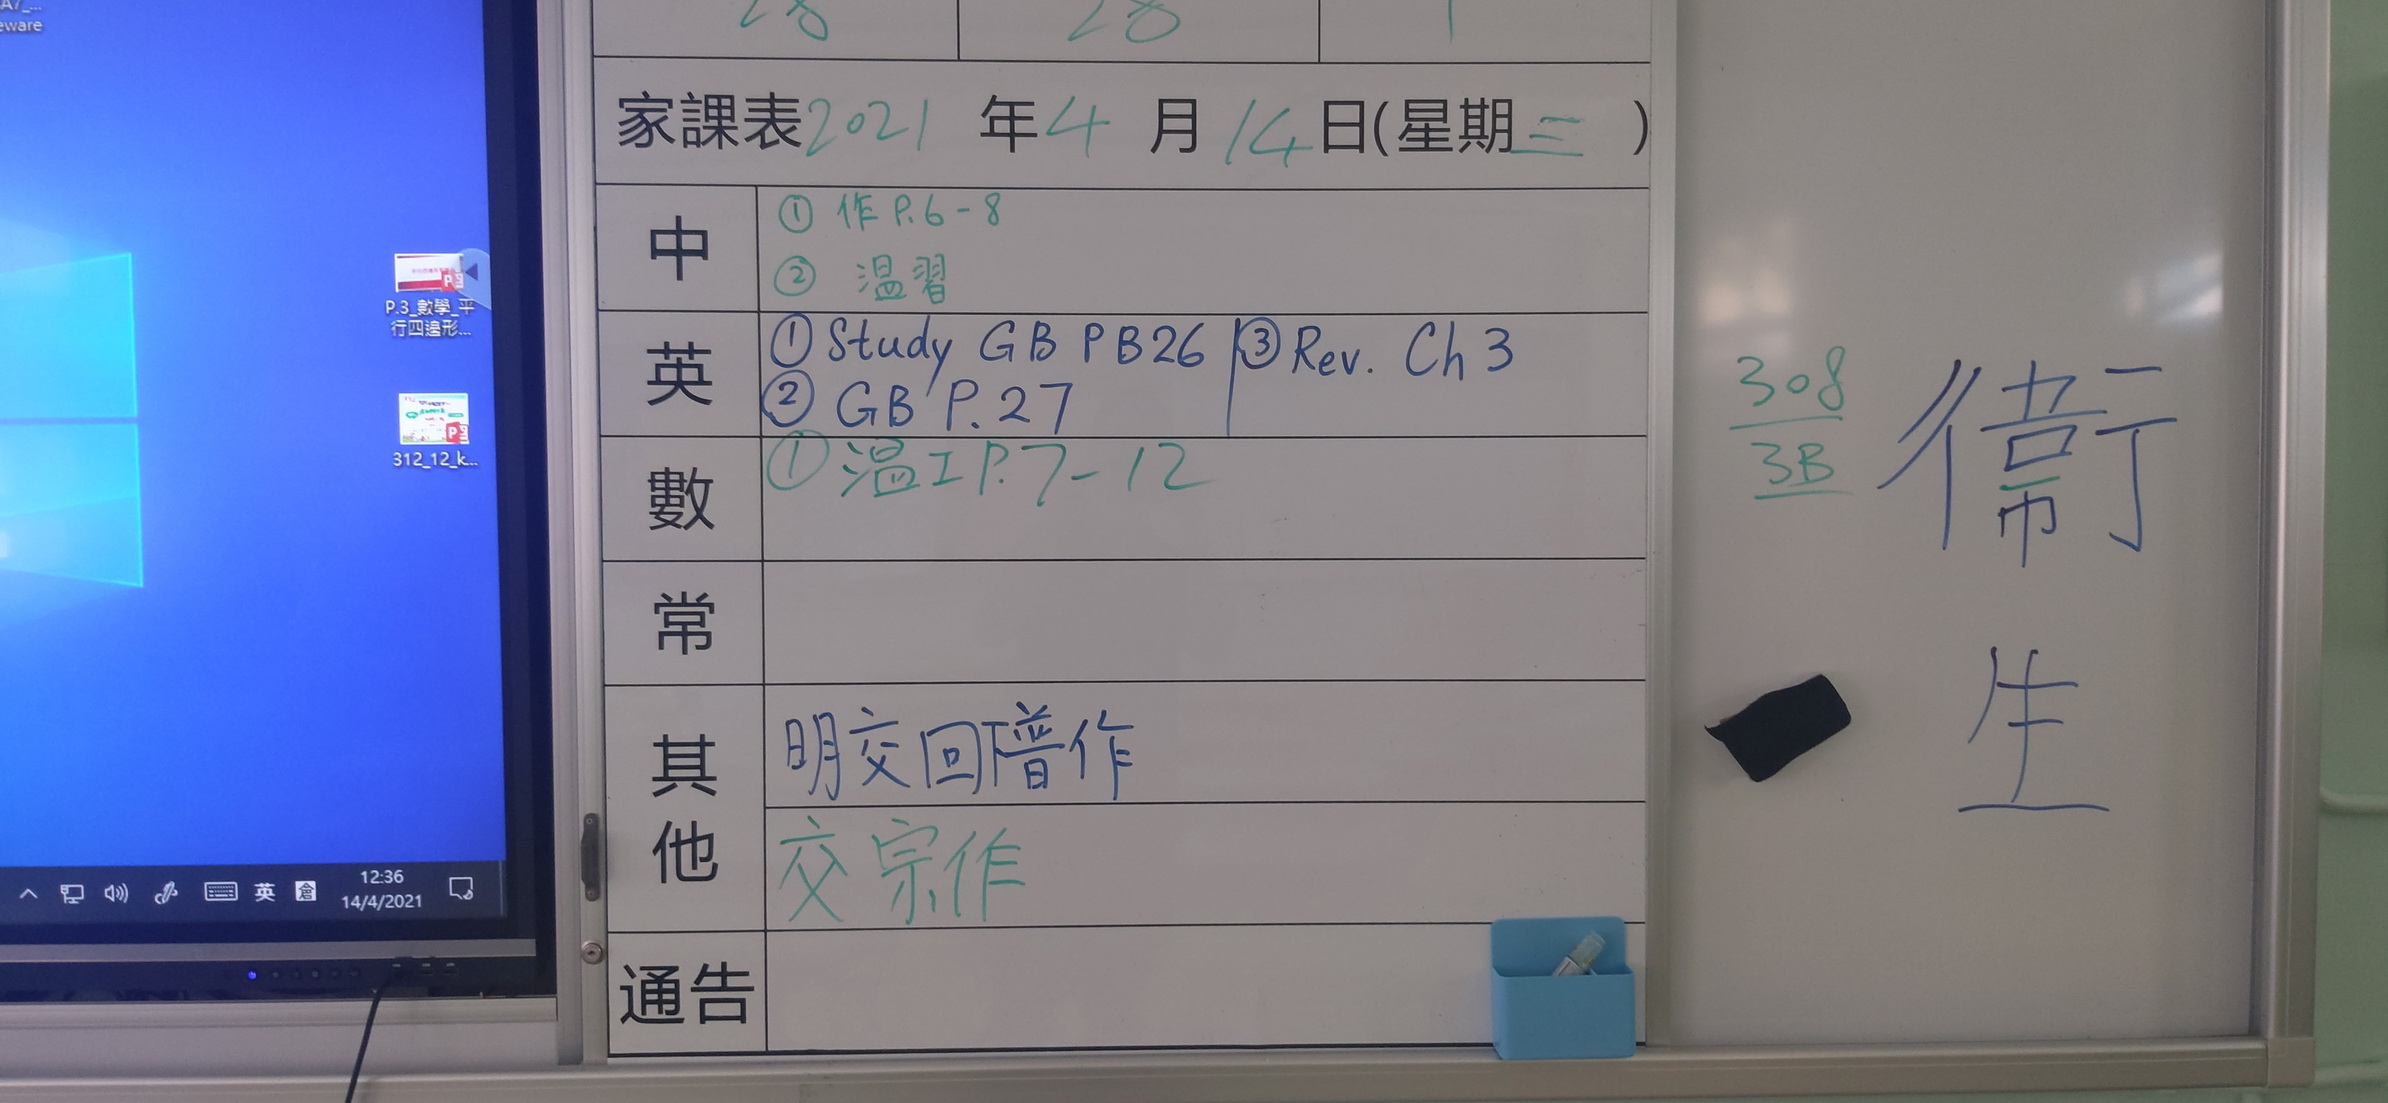 eware
P.3_數學_平
行四邊形...
312_12_k...
英
倉
12:36
14/4/2021
28 28 1
家課表2021年4月14日(星期三)
中
① 作 P.6-8
② 溫習
英
① Study GB PB26
② GB P.27
③ Rev. Ch 3
數
① 溫工P.7-12
常
其他
明交回
作
交宗作
通告
308
3B
衞
生